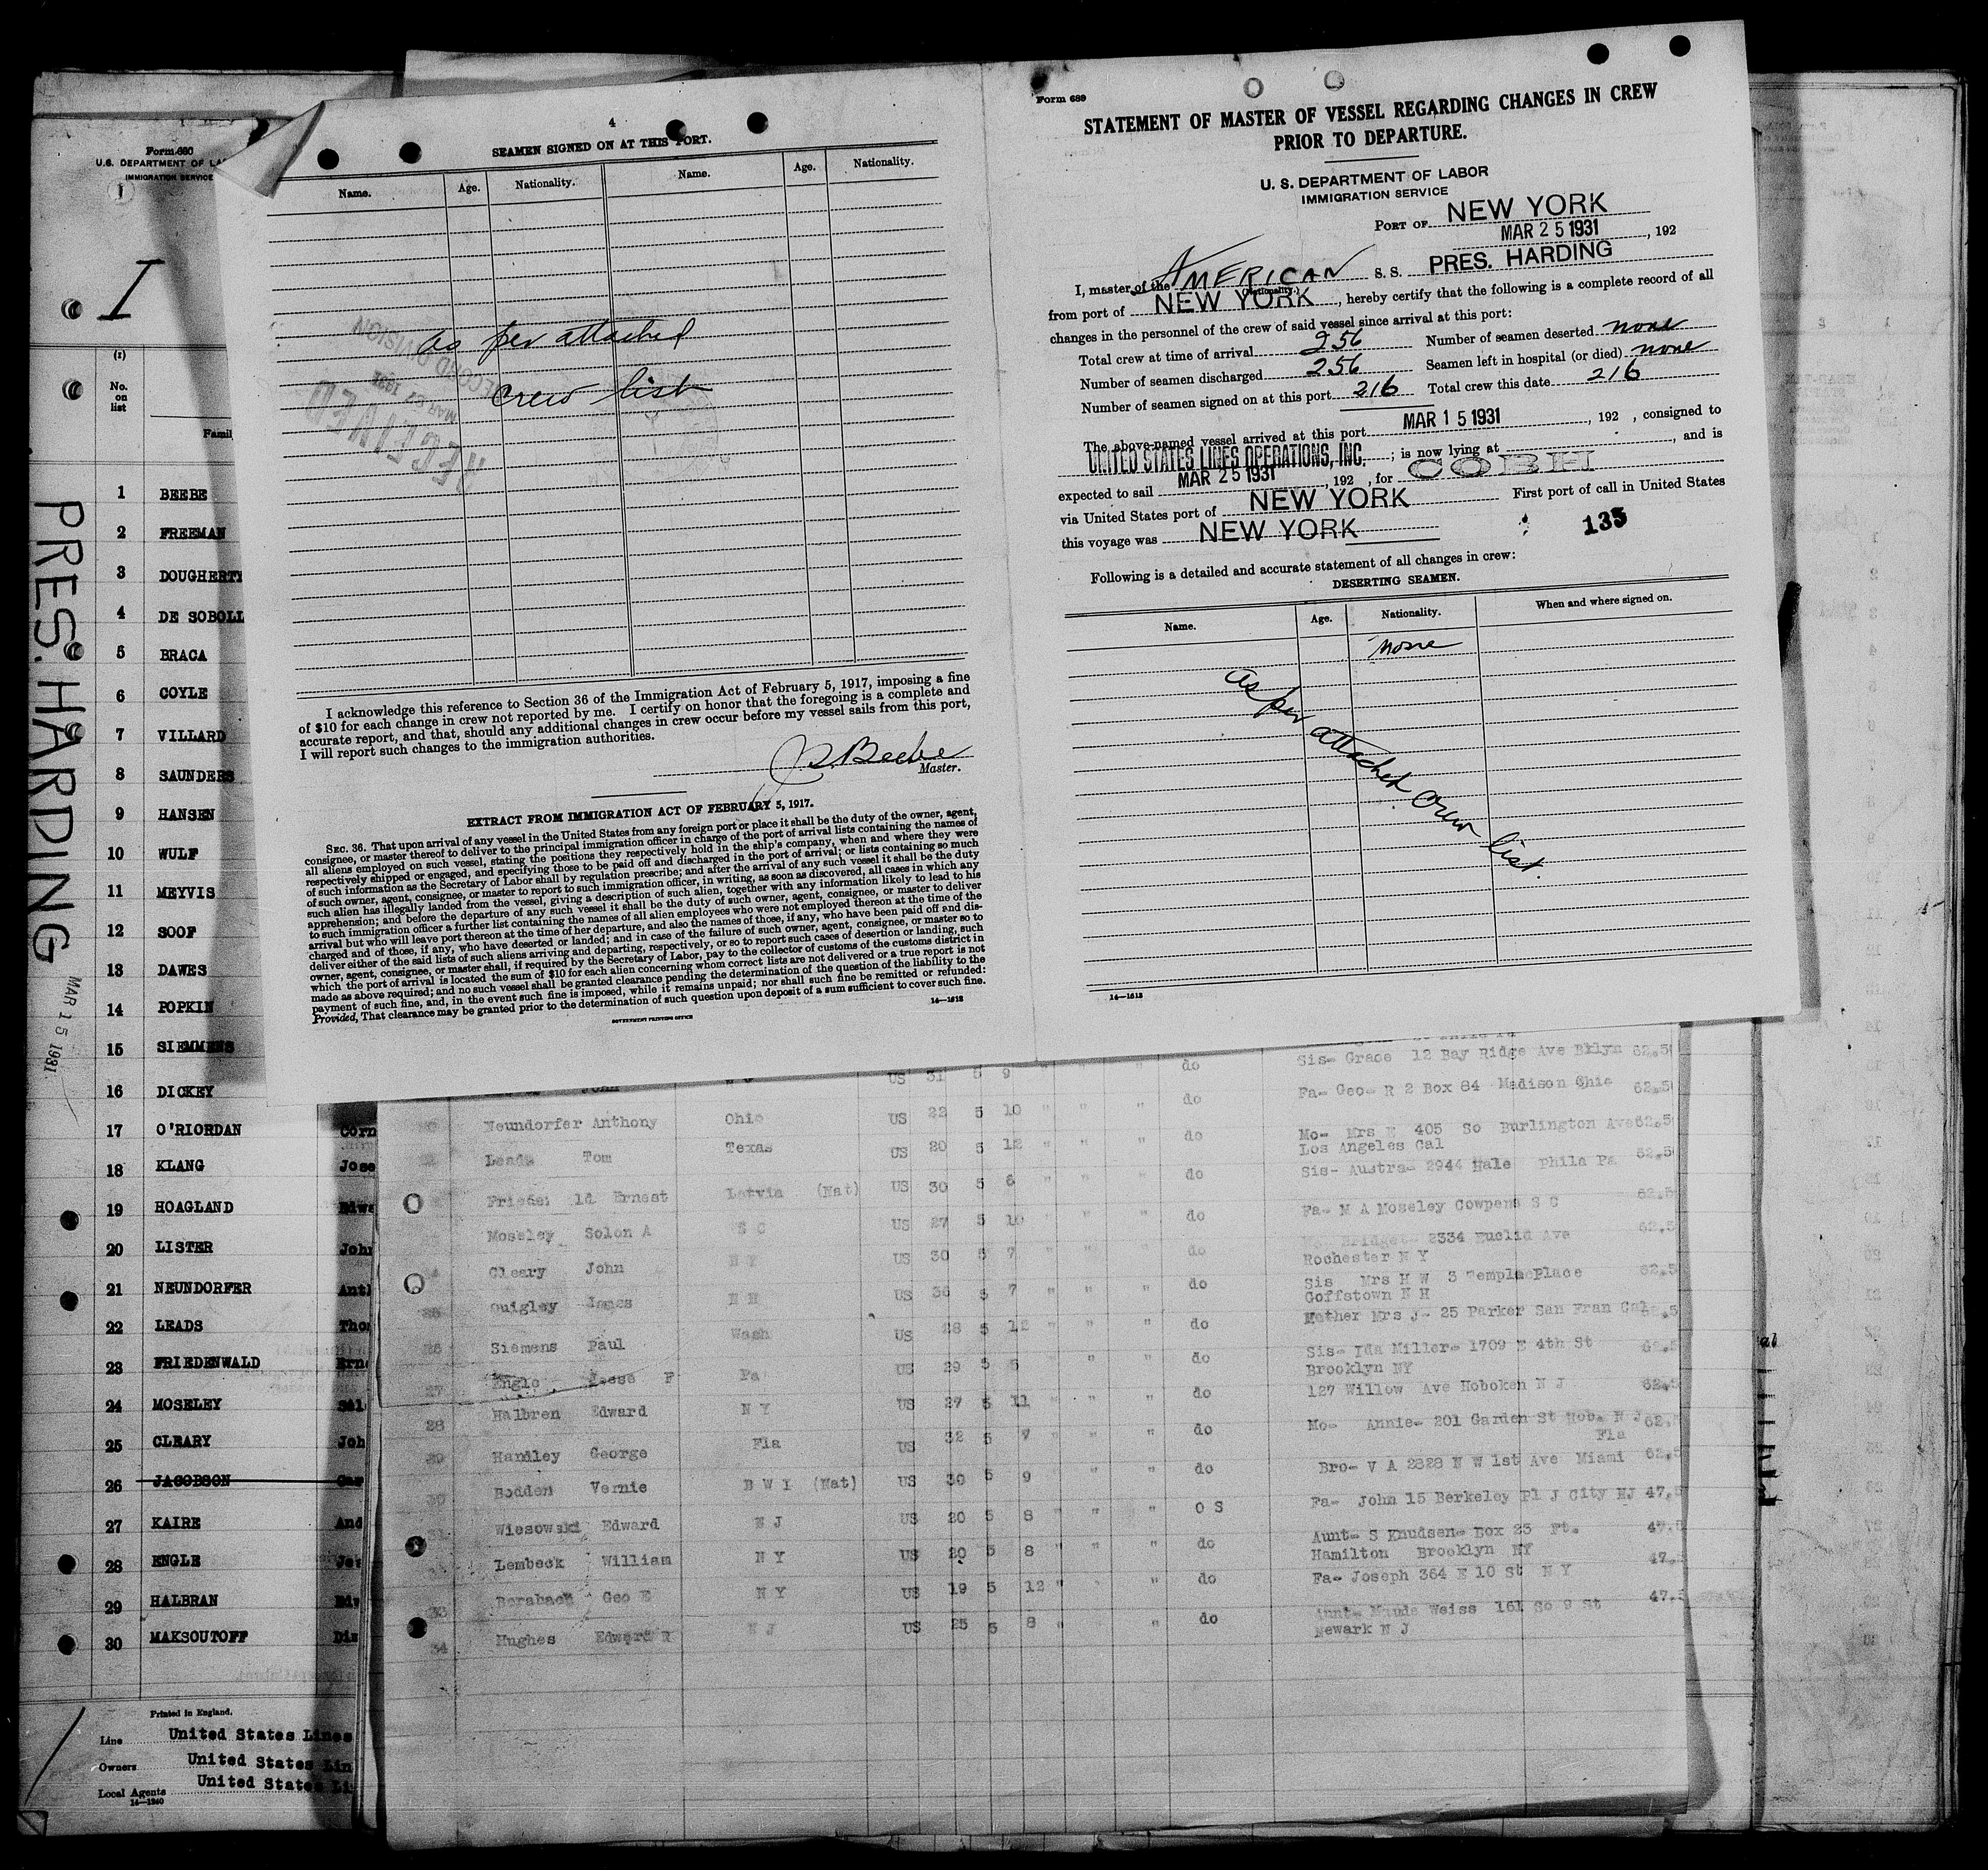 Form 680
U.S. DEPARTMENT OF LA
IMMIGRATION SERVICE
I
(1)
No.
on
list
Famil
PRES. HARDING
MAR 15 1931
1 BEEBE
2 FREEMAN
3 DOUGHERTY
4 DE SOBOLL
5 BRAGA
6 COYLE
7 VILLARD
8 SAUNDERS
9 HANSEN
10 WULF
11 MEYVIS
12 SOOF
13 DAWES
14 POPKIN
15 SIEMMENS
16 DICKEY
17 O'RIORDAN Corn
18 KLANG Jose
19 HOAGLAND Edwa
20 LISTER John
21 NEUNDORFER Anth
22 LEADS Tho
23 FRIEDENWALD Erne
24 MOSELEY Sol
25 CLEARY Joh
26 JACOBSON
27 KAIRE And
28 ENGLE Jes
29 HALBRAN Edw
30 MAKSOUTOFF Dim
Printed in England.
Line United States Lines
Owners United States Lin
Local Agents United States Li
14—1240
4
SEAMEN SIGNED ON AT THIS PORT.
Name. Age. Nationality. Name. Age. Nationality.
as per attached
crew list
RECEIVED
MAR 27 1931
SECOND DIVISION
I acknowledge this reference to Section 36 of the Immigration Act of February 5, 1917, imposing a fine
of $10 for each change in crew not reported by me. I certify on honor that the foregoing is a complete and
accurate report, and that, should any additional changes in crew occur before my vessel sails from this port,
I will report such changes to the immigration authorities.
Beebe
Master.
EXTRACT FROM IMMIGRATION ACT OF FEBRUARY 5, 1917.
SEC. 36. That upon arrival of any vessel in the United States from any foreign port or place it shall be the duty of the owner, agent,
consignee, or master thereof to deliver to the principal immigration officer in charge of the port of arrival lists containing the names of
all aliens employed on such vessel, stating the positions they respectively hold in the ship's company, when and where they were
respectively shipped or engaged, and specifying those to be paid off and discharged in the port of arrival; or lists containing so much
of such information as the Secretary of Labor shall by regulation prescribe; and after the arrival of any such vessel it shall be the duty
of such owner, agent, consignee, or master to report to such immigration officer, in writing, as soon as discovered, all cases in which any
such alien has illegally landed from the vessel, giving a description of such alien, together with any information likely to lead to his
apprehension; and before the departure of any such vessel it shall be the duty of such owner, agent, consignee, or master to deliver
to such immigration officer a further list containing the names of all alien employees who were not employed thereon at the time of the
arrival but who will leave port thereon at the time of her departure, and also the names of those, if any, who have been paid off and dis-
charged and of those, if any, who have deserted or landed; and in case of the failure of such owner, agent, consignee, or master so to
deliver either of the said lists of such aliens arriving and departing, respectively, or so to report such cases of desertion or landing, such
owner, agent, consignee, or master shall, if required by the Secretary of Labor, pay to the collector of customs of the customs district in
which the port of arrival is located the sum of $10 for each alien concerning whom correct lists are not delivered or a true report is not
made as above required; and no such vessel shall be granted clearance pending the determination of the question of the liability to the
payment of such fine, and, in the event such fine is imposed, while it remains unpaid; nor shall such fine be remitted or refunded:
Provided, That clearance may be granted prior to the determination of such question upon deposit of a sum sufficient to cover such fine.
14—1613
GOVERNMENT PRINTING OFFICE
Form 689
STATEMENT OF MASTER OF VESSEL REGARDING CHANGES IN CREW
PRIOR TO DEPARTURE.
U. S. DEPARTMENT OF LABOR
IMMIGRATION SERVICE
PORT OF NEW YORK
MAR 25 1931, 192
I, master of the AMERICAN S. S. PRES. HARDING
(Nationality.)
from port of NEW YORK, hereby certify that the following is a complete record of all
changes in the personnel of the crew of said vessel since arrival at this port:
Total crew at time of arrival 256 Number of seamen deserted none
Number of seamen discharged 256 Seamen left in hospital (or died) none
Number of seamen signed on at this port 216 Total crew this date 216
The above-named vessel arrived at this port MAR 15 1931, 192 , consigned to
UNITED STATES LINES OPERATIONS, INC. ; is now lying at , and is
expected to sail MAR 25 1931, 192 , for COBH
via United States port of NEW YORK First port of call in United States
this voyage was NEW YORK
135
Following is a detailed and accurate statement of all changes in crew:
DESERTING SEAMEN.
Name. Age. Nationality. When and where signed on.
none
as per attached crew list.
14—1613
US 31 5 9 " " do Sis- Grace 12 Bay Ridge Ave Bklyn 62.50
Neundorfer Anthony Ohio US 22 5 10 " " " do Fa- Geo- R 2 Box 84 Madison Ohio 62.50
Leads Tom Texas US 20 5 12 " " " do Mo- Mrs E 405 So Burlington Ave 62.50
Los Angeles Cal
Friede ld Ernest Latvia (Nat) US 30 5 6 " " " do Sis- Austra- 2944 Hale Phila Pa 62.50
Moseley Solon A S C US 27 5 10 " " " do Fa- M A Moseley Cowpens S C 62.5
Cleary John N Y US 30 5 7 " " " do Bridget- 2334 Euclid Ave 62.5
Rochester N Y
Quigley James N H US 36 5 7 " " " do Sis Mrs H W 3 Temple Place 62.5
Goffstown N H
26 Siemens Paul Wash US 28 5 12 " " " do Mother Mrs J- 25 Parker San Fran Cal
27 Engle Jesse F Pa US 29 5 5 " " do Sis- Ida Miller- 1709 E 4th St 62.5
Brooklyn NY
28 Halbren Edward N Y US 27 5 11 " " " do 127 Willow Ave Hoboken N J 62.5
29 Handley George Fla US 32 5 7 " " do Mo- Annie- 201 Garden St Hob. N J 62.
Fla
30 Bodden Vernie B W I (Nat) US 30 5 9 " " do Bro- V A 2828 N W 1st Ave Miami 62.5
31 Wiesowski Edward N J US 20 5 8 " " " O S Fa- John 15 Berkeley Pl J City NJ 47.5
Lembeck William N Y US 20 5 8 " " " do Aunt- S Knudsen- Box 23 Ft. 47.5
Hamilton Brooklyn NY
33 Geo E N Y US 19 5 12 " " " do Fa- Joseph 364 E 10 St N Y 47.5
34 Hughes Edward R N J US 25 5 8 " " " do Aunt- Maude Weiss 161 So 9 St 47.5
Newark N J